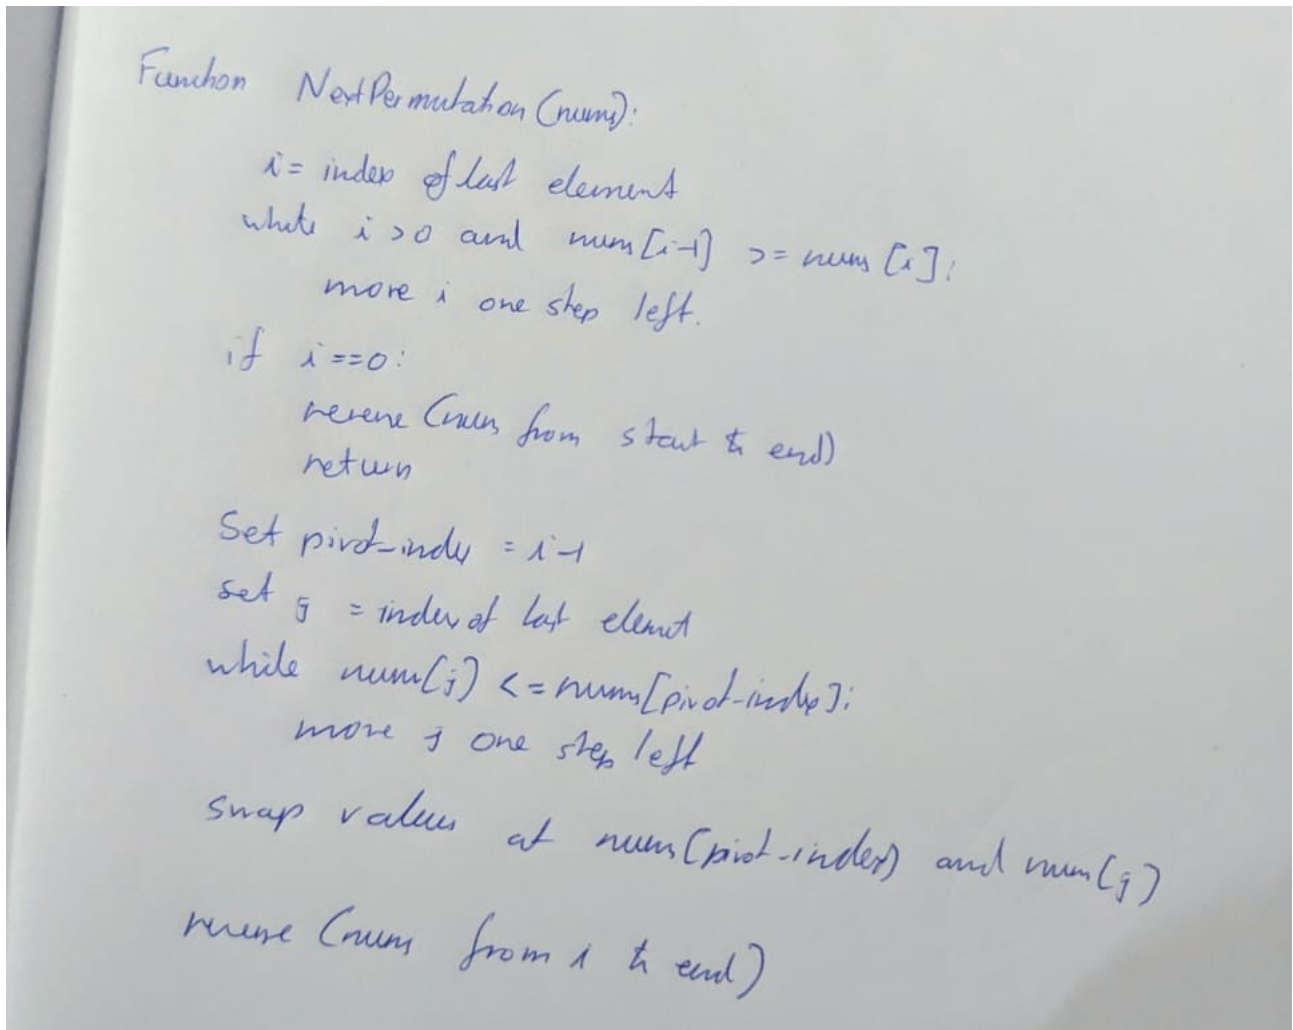 Function NextPermutation(nums):
i = index of last element
while i > 0 and nums[i-1] >= nums[i]:
move i one step left.
if i == 0:
reverse (nums from start to end)
return
Set pivot-index = i-1
set j = index of last element
while nums[j] <= nums[pivot-index]:
move j one step left
swap values at nums(pivot-index) and num(j)
reverse (nums from i to end)